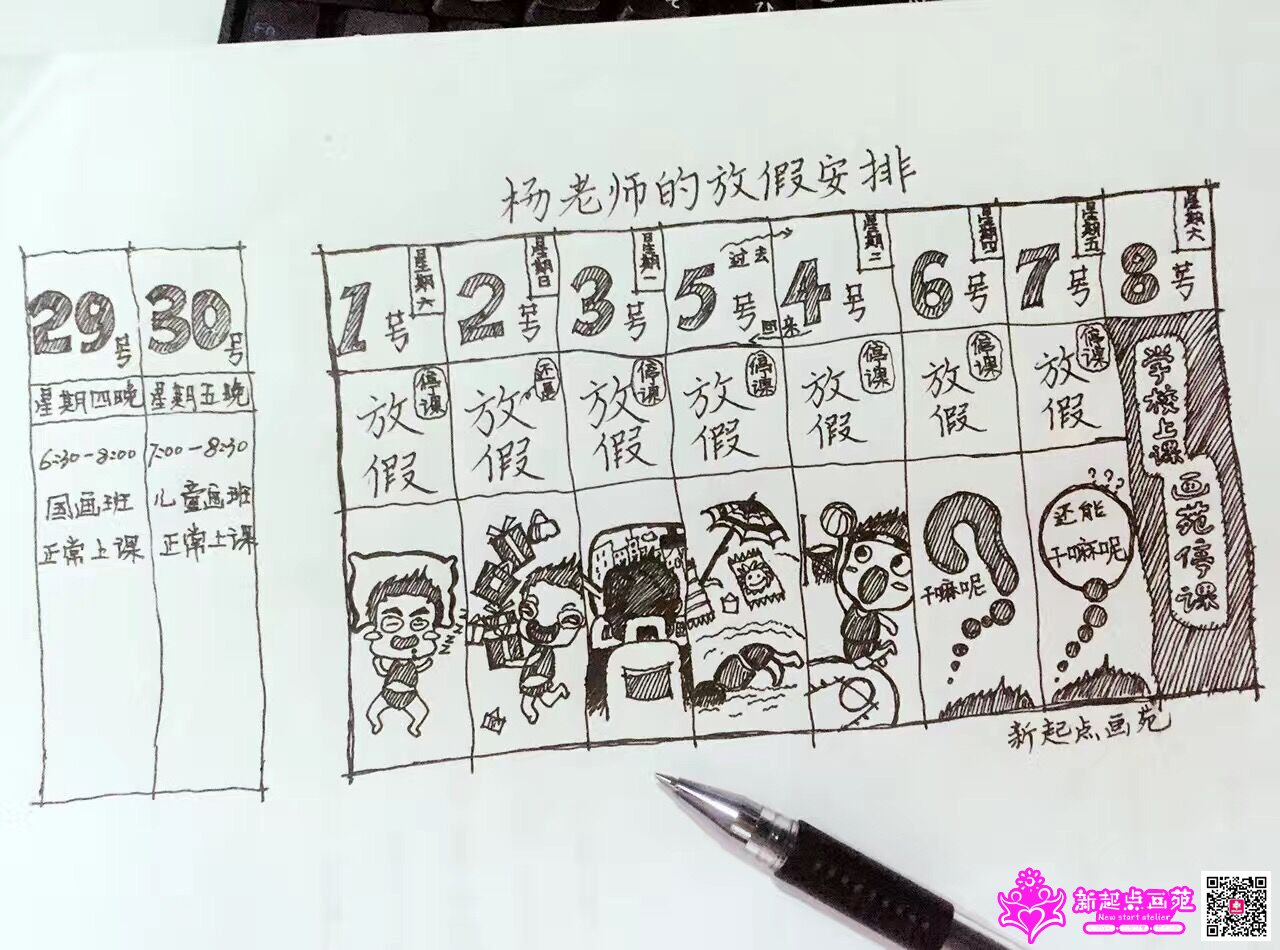 杨老师的放假安排
29号
星期四晚
6:30-8:00
国画班
正常上课
30号
星期五晚
7:00-8:30
儿童画班
正常上课
1号
星期六
放假
停课
2号
星期日
放假
还是
3号
星期一
放假
停课
5号
过去
回来
放假
停课
4号
星期二
放假
停课
6号
星期四
放假
停课
7号
星期五
放假
停课
8号
星期六
zzzz
?
干嘛呢
???
还能
干嘛呢
学校上课
画苑停课
新起点画苑
新起点画苑
New start atelier